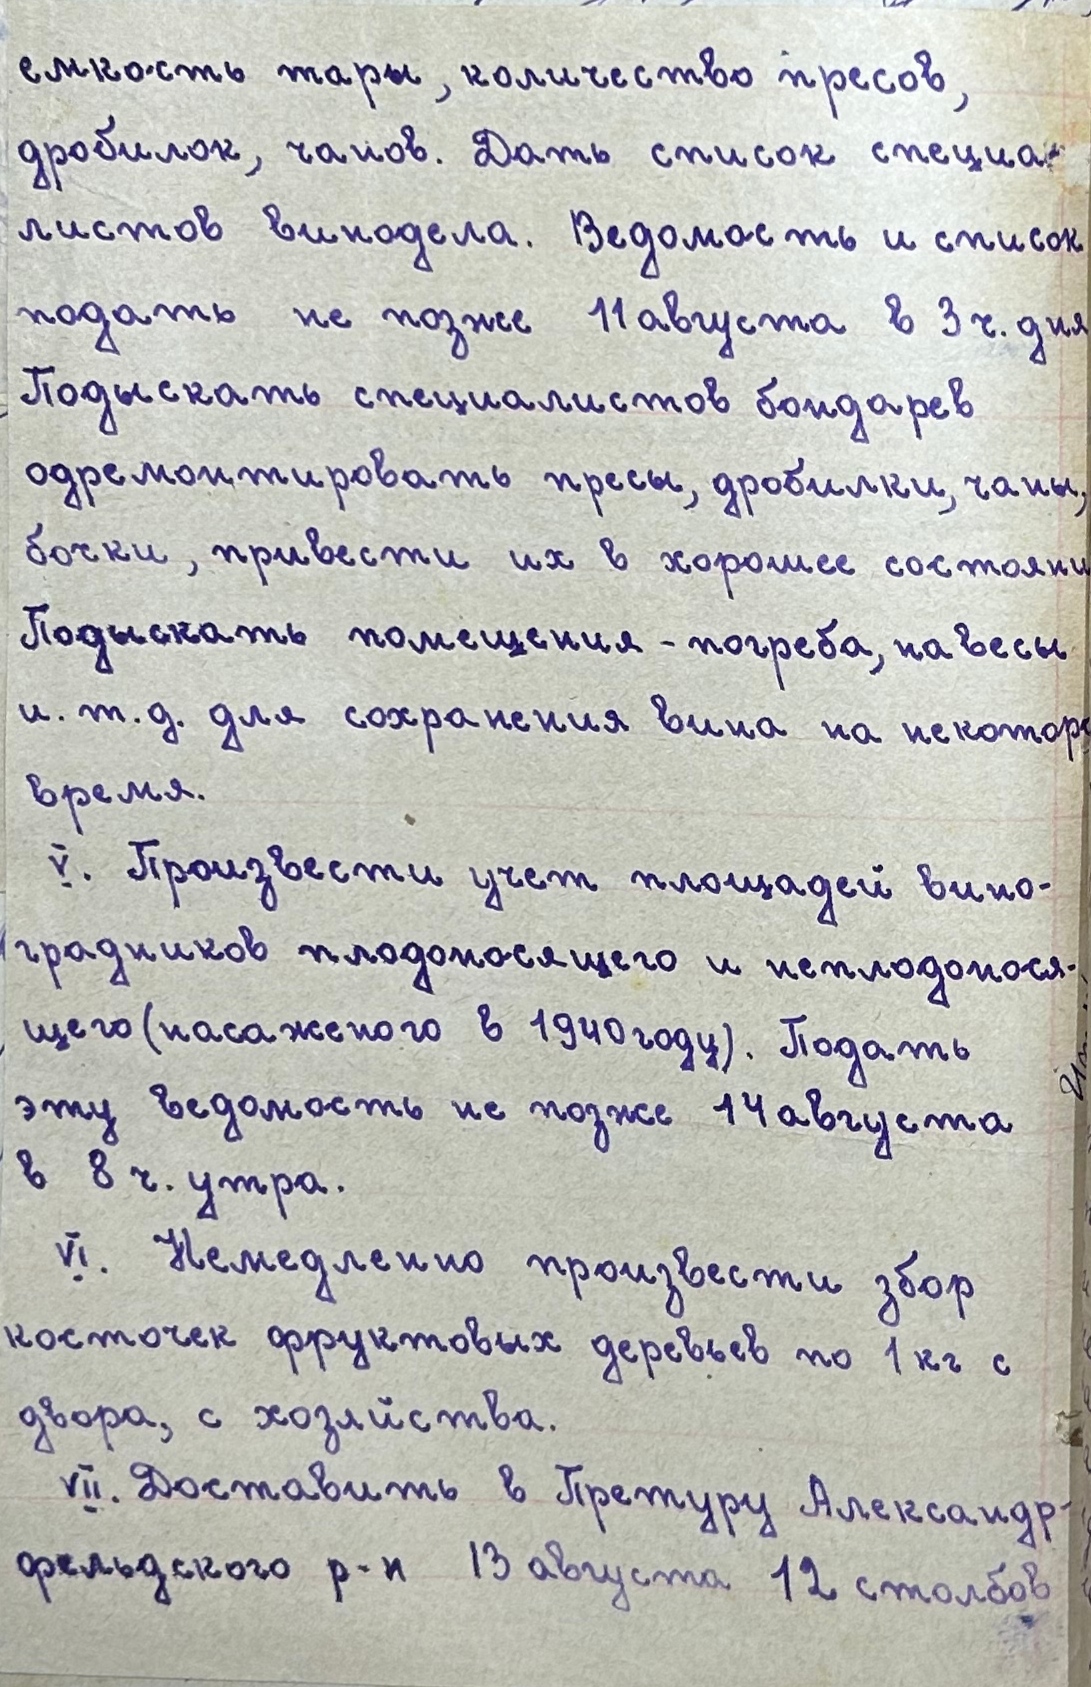 емкость тары, количество пресов,
дробилок, чанов. Дать список специа-
листов винодела. Ведомость и список
подать не позже 11 августа в 3 ч. дня
Подыскать специалистов бондарев
одремонтировать пресы, дробилки, чаны,
бочки, привести их в хорошее состояни
Подыскать помещения - погреба, навесы
и. т. д. для сохранения вина на некотор
время.
V. Произвести учет площадей вино-
градников плодоносящего и неплодонося-
щего (насаженого в 1940 году). Подать
эту ведомость не позже 14 августа
в 8 ч. утра.
VI. Немедленно произвести збор
косточек фруктовых деревьев по 1 кг с
двора, с хозяйства.
VII. Доставить в Претуру Александр-
фельдского р-н 13 августа 12 столбов